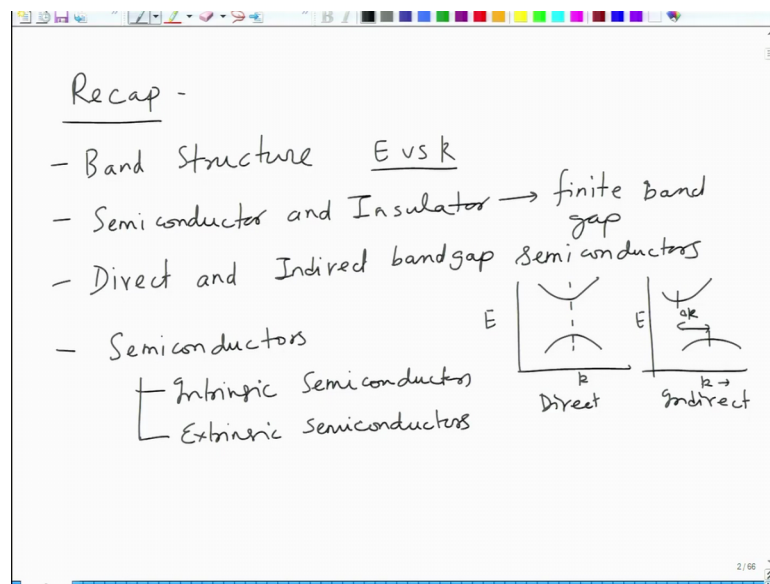 Recap -
- Band Structure E vs k
- Semiconductor and Insulator → finite band
gap
- Direct and Indirect bandgap semiconductors
- Semiconductors
Intrinsic Semiconductors
Extrinsic Semiconductors
E
k
Direct
E
Δk
k →
Indirect
2/66